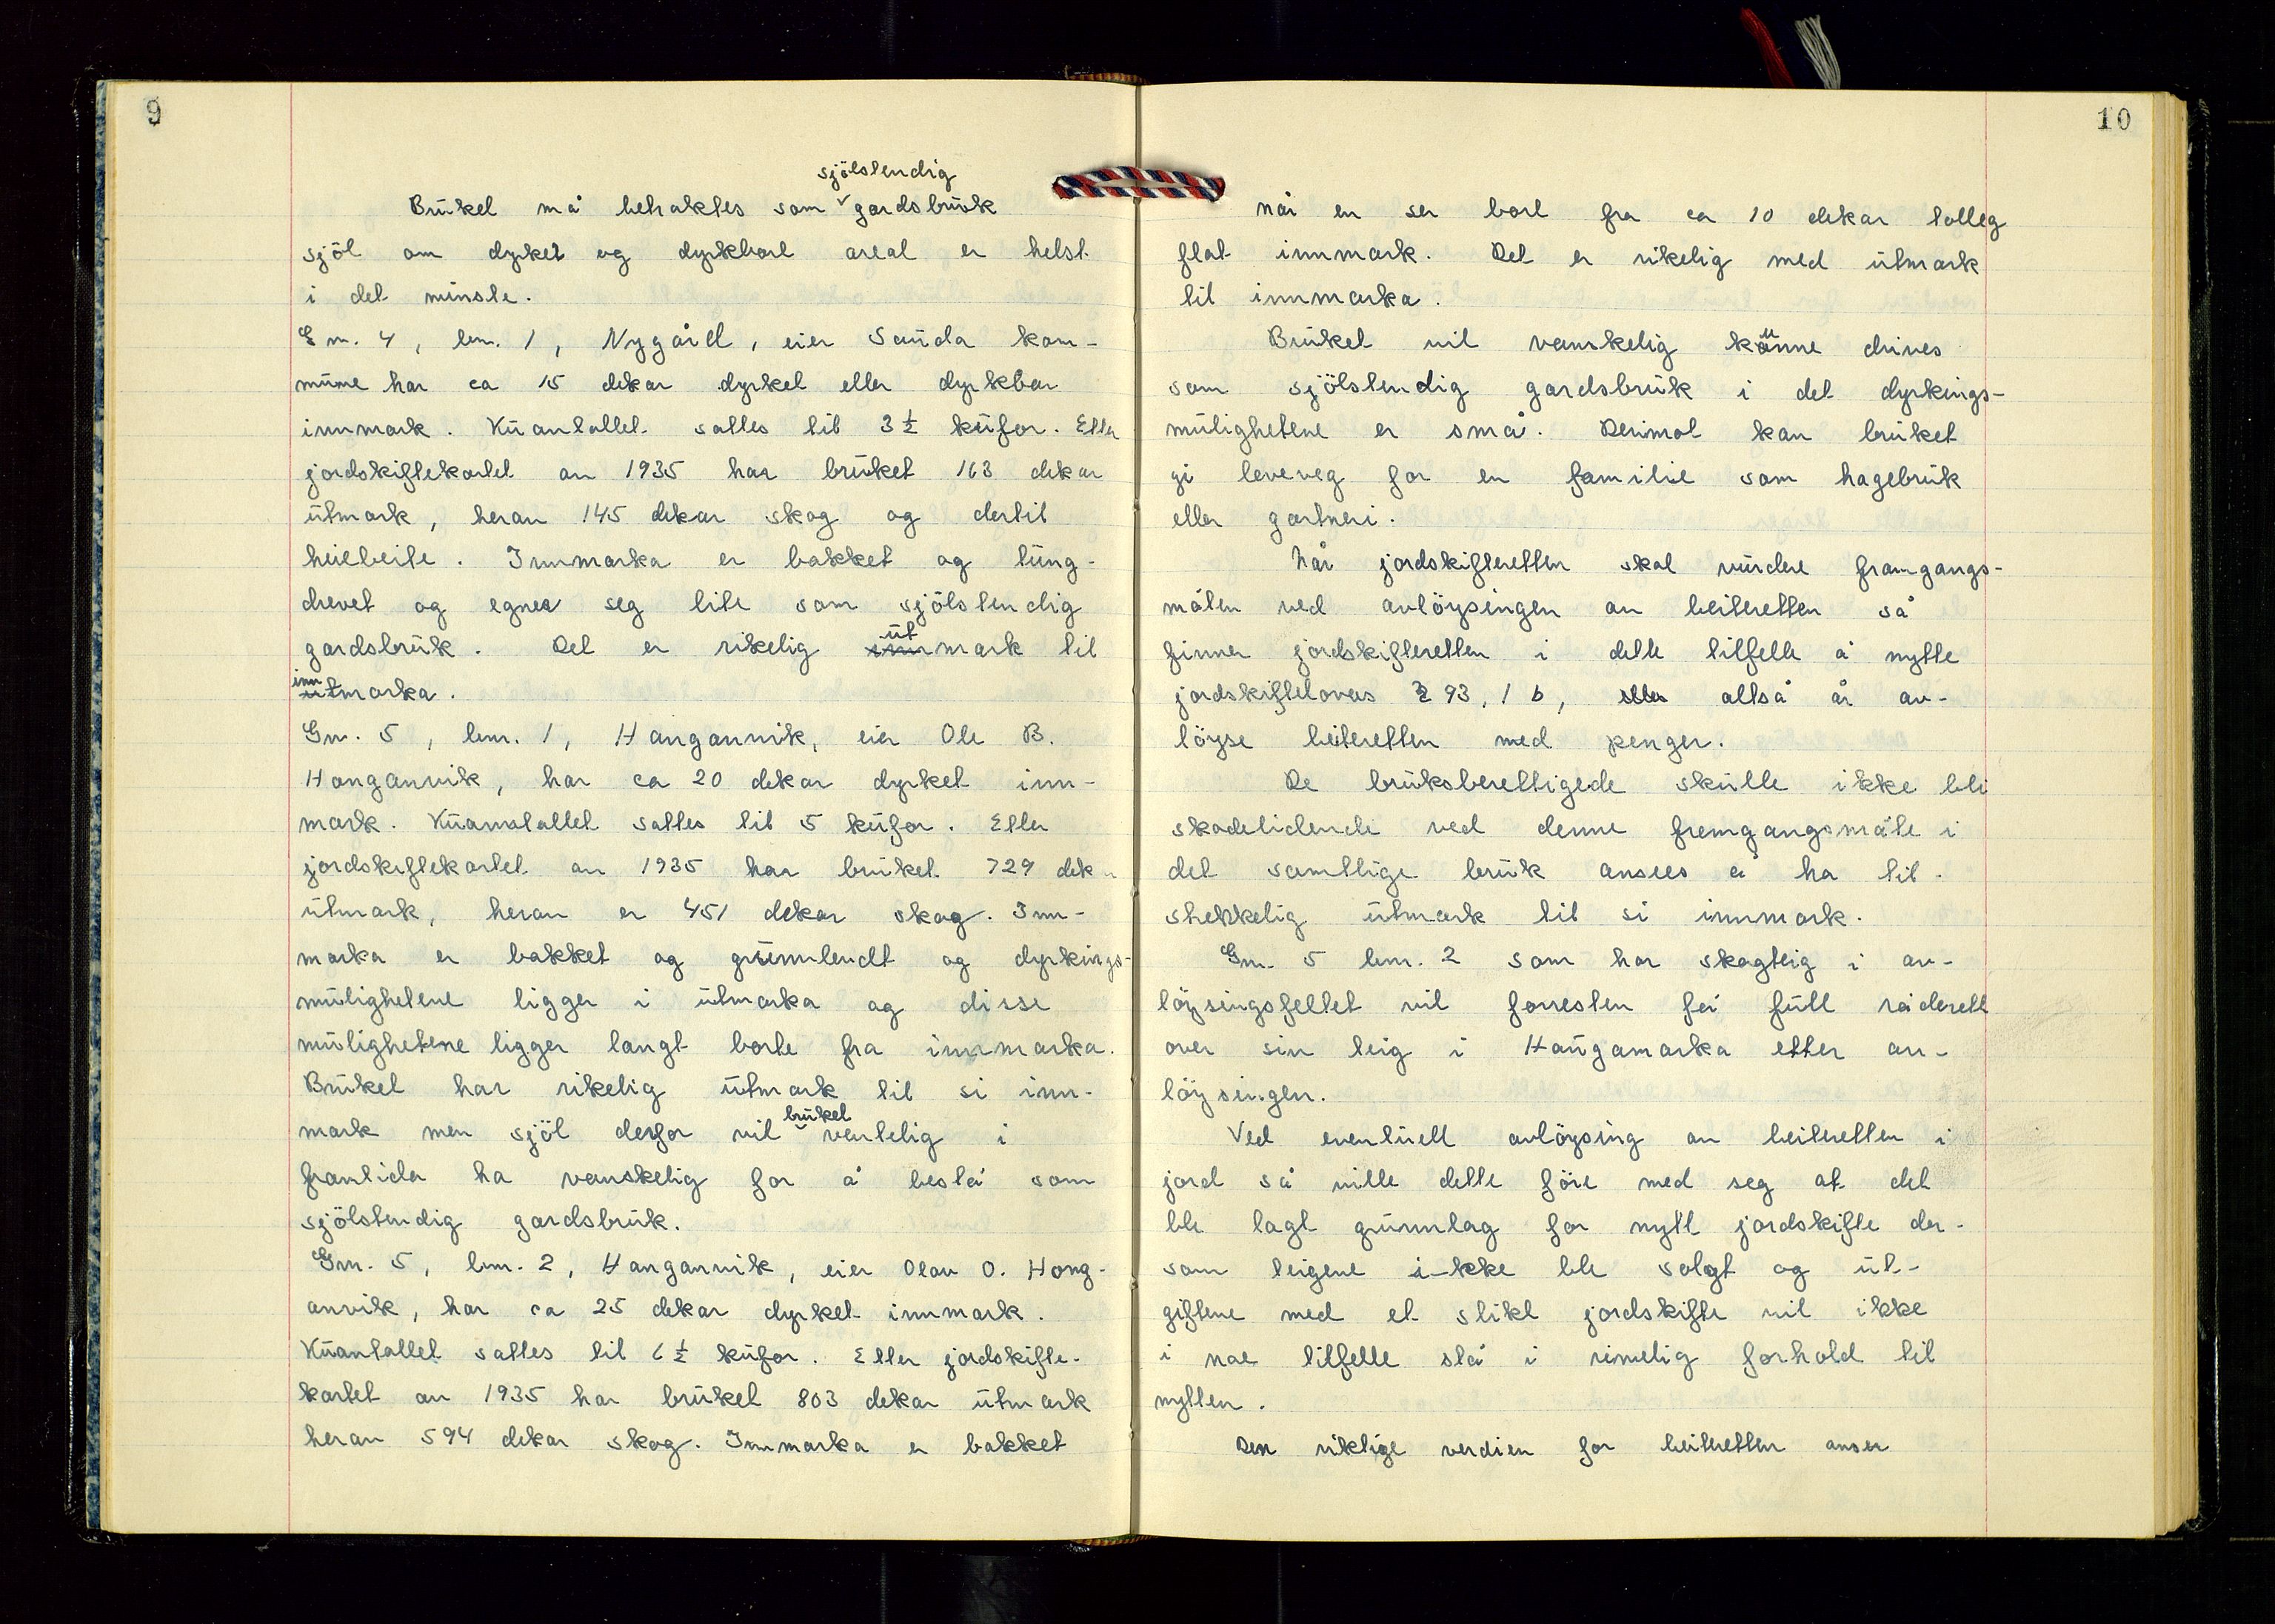 9
sjölstendig
Bruket må betraktes som gardsbruk
sjöl om dyrket og dyrkbart areal er helst
i det minste.
Gnr. 4, bnr. 1, Nygård, eier Sauda kom-
mune har ca 15 dekar dyrket eller dyrkbar
innmark. Kuantallet settes til 3 ½ kufor. Etter
jordskiftekartet av 1935 har bruket 163 dekar
utmark, herav 145 dekar skog og dertil
heiebeite. Innmarka er bakket og tung-
drevet og egner seg lite som sjölstendig
gardsbruk. Det er rikelig utmark til
innmarka.
Gnr. 5, bnr. 1, Hanganvik, eier Ole B.
Hanganvik, har ca 20 dekar dyrket inn-
mark. Kuantallet settes til 5 kufor. Etter
jordskiftekartet av 1935 har bruket 729 dekar
utmark, herav er 451 dekar skog. Inn-
marka er bakket og grunnlendt og dyrkings-
mulighetene ligger i utmarka og disse
mulighetene ligger langt borte fra innmarka.
Bruket har rikelig utmark til si inn-
mark men sjöl derfor vil bruket ventelig i
framtida ha vanskelig for å bestå som
sjölstendig gardsbruk.
Gnr. 5, bnr. 2, Hanganvik, eier Olav O. Hang-
anvik, har ca 25 dekar dyrket innmark.
Kuantallet settes til 6 ½ kufor. Etter jordskifte-
kartet av 1935 har bruket 803 dekar utmark
herav 594 dekar skog. Innmarka er bakket
10
når en ser bort fra ca 10 dekar tålleg
flat innmark. Det er rikelig med utmark
til innmarka.
Bruket vil vanskelig kunne drives
som sjölstendig gardsbruk i det dyrkings-
mulighetene er små. Derimot kan bruket
gi leveveg for en familie som hagebruk
eller gartneri.
Når jordskifteretten skal vurdere framgangs-
måten ved avlöysingen av beiteretten så
finner jordskifteretten i dette tilfelle å nytte
jordskiftelovens § 93, 1 b, altså å av-
löyse beiteretten med penger.
De bruksberettigede skulle ikke bli
skadelidende ved denne fremgangsmåte i
det samtlige bruk ansees å ha til-
strekkelig utmark til si innmark.
Gnr. 5 bnr. 2 som har skogteig i av-
löysingsfeltet vil forresten få full råderett
over sin teig i Haugamarka etter av-
löysingen.
Ved eventuell avlöysing av beiteretten i
jord så ville dette före med seg at det
ble lagt grunnlag for nytt jordskifte der-
som teigene ikke ble solgt og ut-
giftene med et slikt jordskifte vil ikke
i noe tilfelle stå i rimelig forhold til
nytten.
Den riktige verdien for beiteretten anser